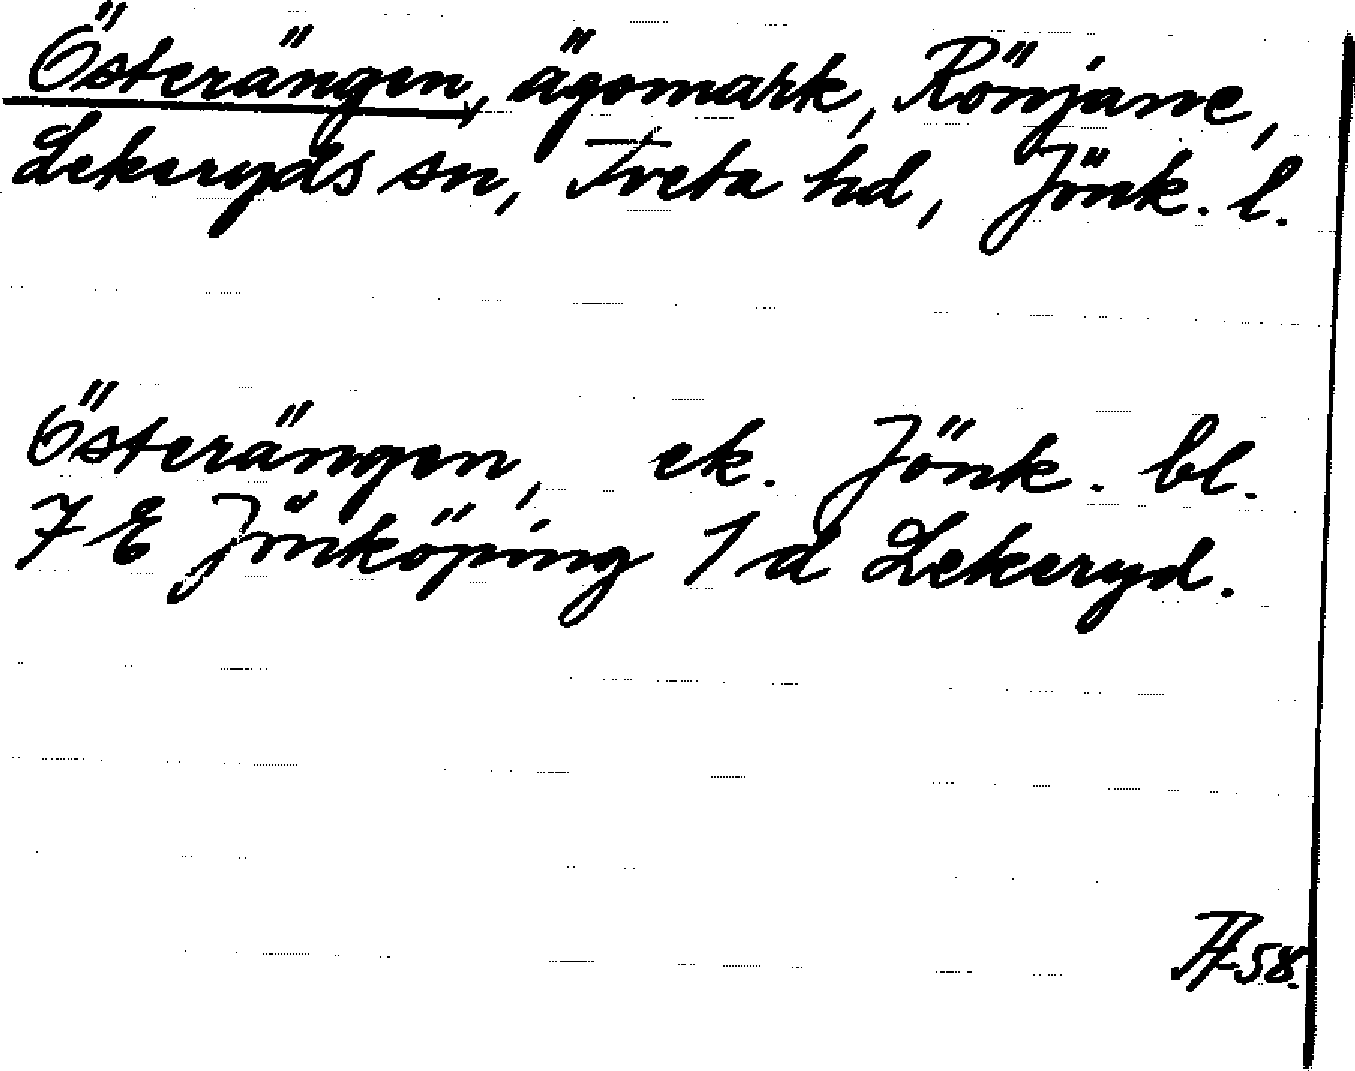 Österängen, ägomark, Rönjane,
Lekeryds sn, Tveta hd, Jönk. l.
Österängen, ek. Jönk. bl.
7 E Jönköping 1 d Lekeryd.
58.